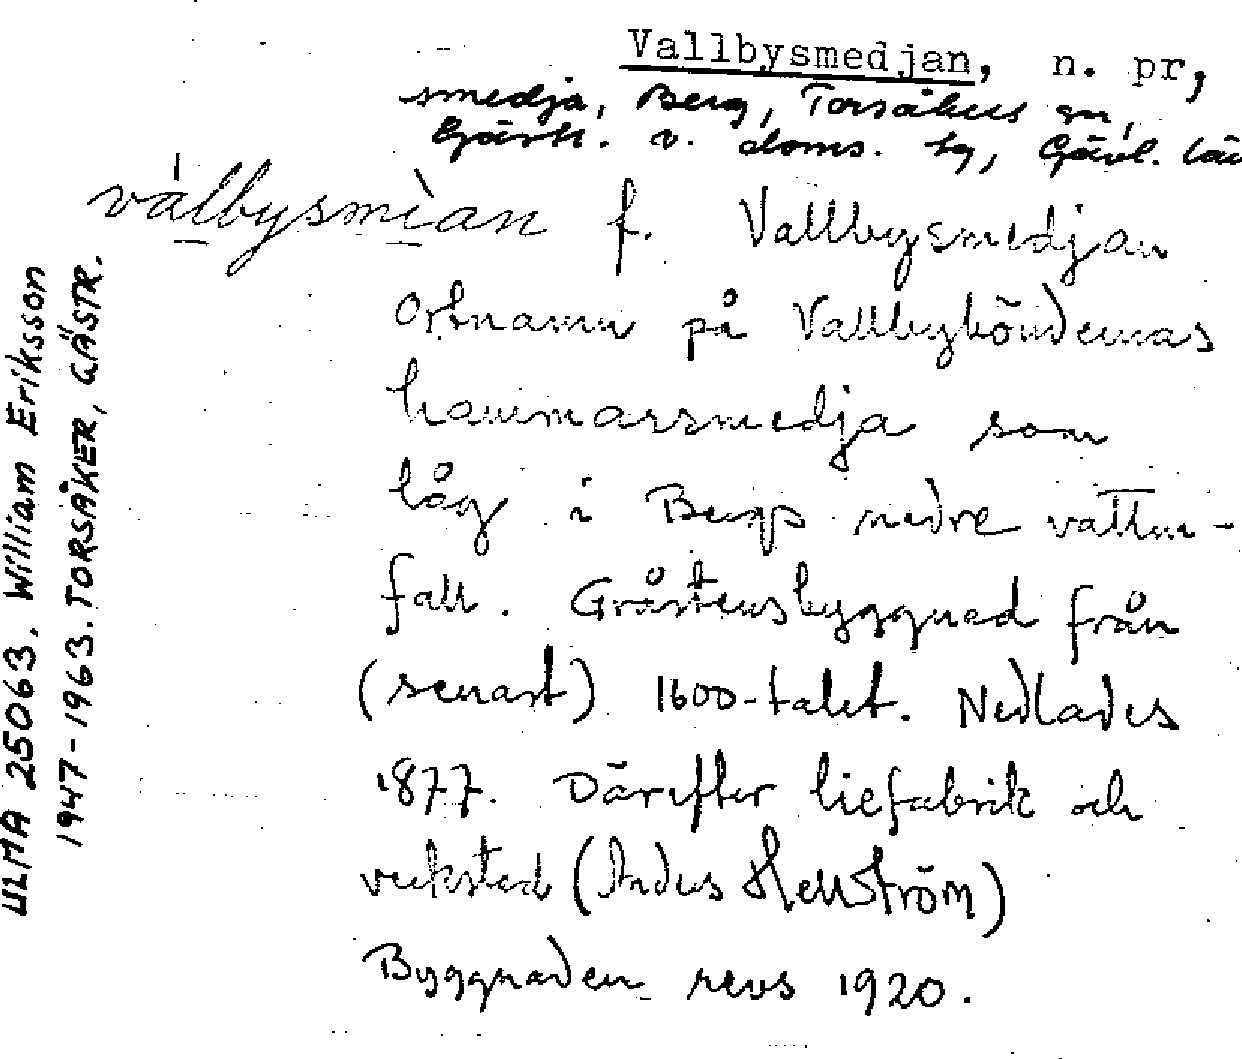 Vallbysmedjan, n. pr,
smedja, Berg, Torsåkers sn,
Gästr. v. doms. tg, Gävl. län
válbysmìan f. Vallbysmedjan
Ortnamn på Vallbyböndernas
hammarsmedja som
låg i Bergs nedre vatten-
fall. Gråstensbyggnad från
(senast) 1600-talet. Nedlades
1877. Därefter liefabrik och
verkstad (Anders Hellström)
Byggnaden revs 1920.
ULMA 25063. William Eriksson
1947-1963. TORSÅKER, GÄSTR.